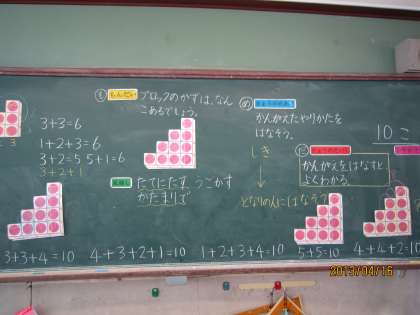 3+3=6
1+2+3=6
3+2=5 5+1=6
3+2+1
3+3+4=10
も もんだい ブロックのかずは、なん
こあるでしょう。
たてにたす うごかす
かたまりで
4+3+2+1=10
め
かんがえたやりかたを
はなそう。
しき
↓
となりの人にはなそう
1+2+3+4=10
かんがえをはなすと
よくわかる。
5+5=10
10こ
4+4+2=10
2013/04/16